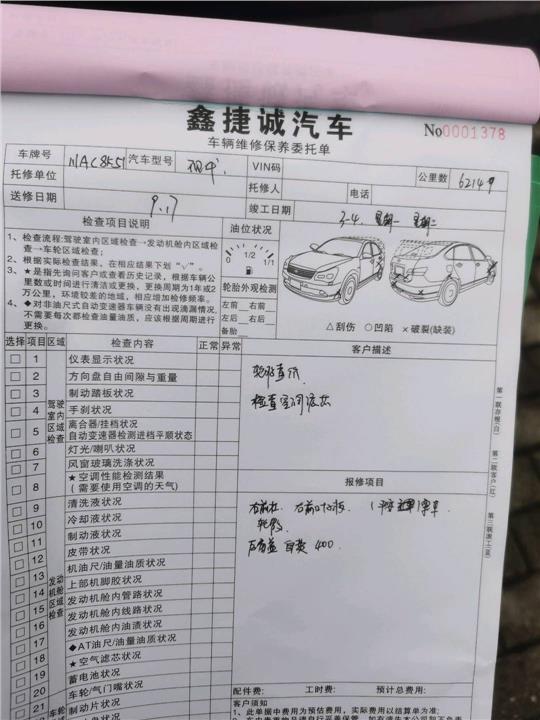 鑫捷诚汽车
车辆维修保养委托单
No0001378
车牌号 汽车型号 VIN码 公里数
托修单位 托修人 电话
送修日期 9.17 竣工日期 3-4 星期一 星期二
检查项目说明
1、检查流程:驾驶室内区域检查→发动机舱内区域检查→车轮区域检查;
2、根据实际检查结果，在相应结果下划"√"。
3、★是指先询问客户或查看历史记录，根据车辆公里数或时间进行清洁或更换，更换周期为1年或2万公里，环境较差的地域，相应增加检修频率。
4、◆对非油尺式自动变速器车辆没有出现油漏情况，不需要每次都检查油量油质，应该根据周期进行更换。
油位状况
0 1/2 1/1
轮胎外观检测
左前 右前
左后 右后
备胎
△刮伤 ○凹陷 ×破裂(缺装)
选择 项目 区域 检查内容 正常 异常
驾驶室内区域检查
1 仪表显示状况
2 方向盘自由间隙与重量
3 制动踏板状况
4 手刹状况
5 离合器/挂档状况
自动变速器检测进档平顺状态
6 灯光/喇叭状况
7 风窗玻璃洗涤状况
8 ★空调性能检测结果
(需要使用空调的天气)
发动机舱区域检查
9 清洗液状况
10 冷却液状况
11 制动液状况
12 皮带状况
13 机油尺/油量油质状况
14 上部机脚胶状况
15 发动机舱内管路状况
16 发动机舱内线路状况
17 发动机舱内油渍状况
18 ◆AT油尺/油量油质状况
19 ★空气滤芯状况
20 蓄电池状况
21 车轮/气门嘴状况
22 制动片状况
车轮
客户描述
检查空调滤芯
报修项目
轮胎
自费 400
第一联存根(白)
第二联客户(红)
第三联施工(蓝)
配件费: 工时费: 预计总费用:
客户须知
1、此单据中费用为预估费用，实际费用以结算单为准。